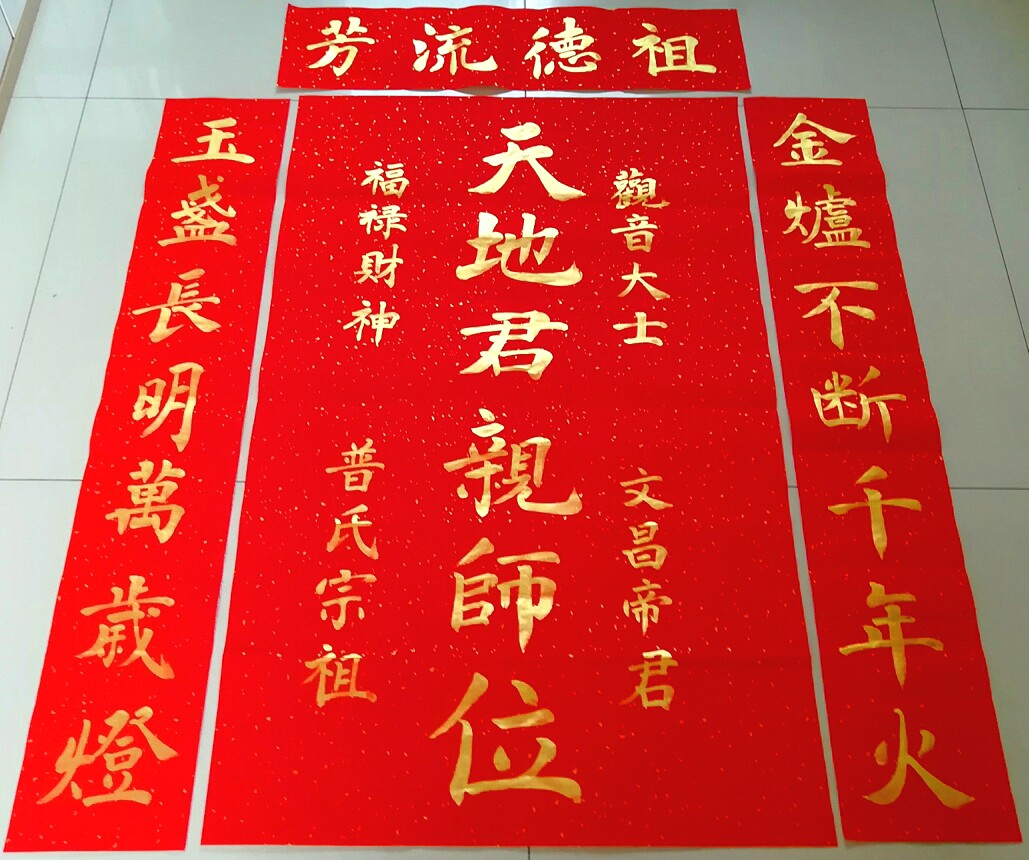 祖德流芳
金爐不断千年火
觀音大士
文昌帝君
天地君親師位
福禄財神
普氏宗祖
玉盏長明萬歲燈